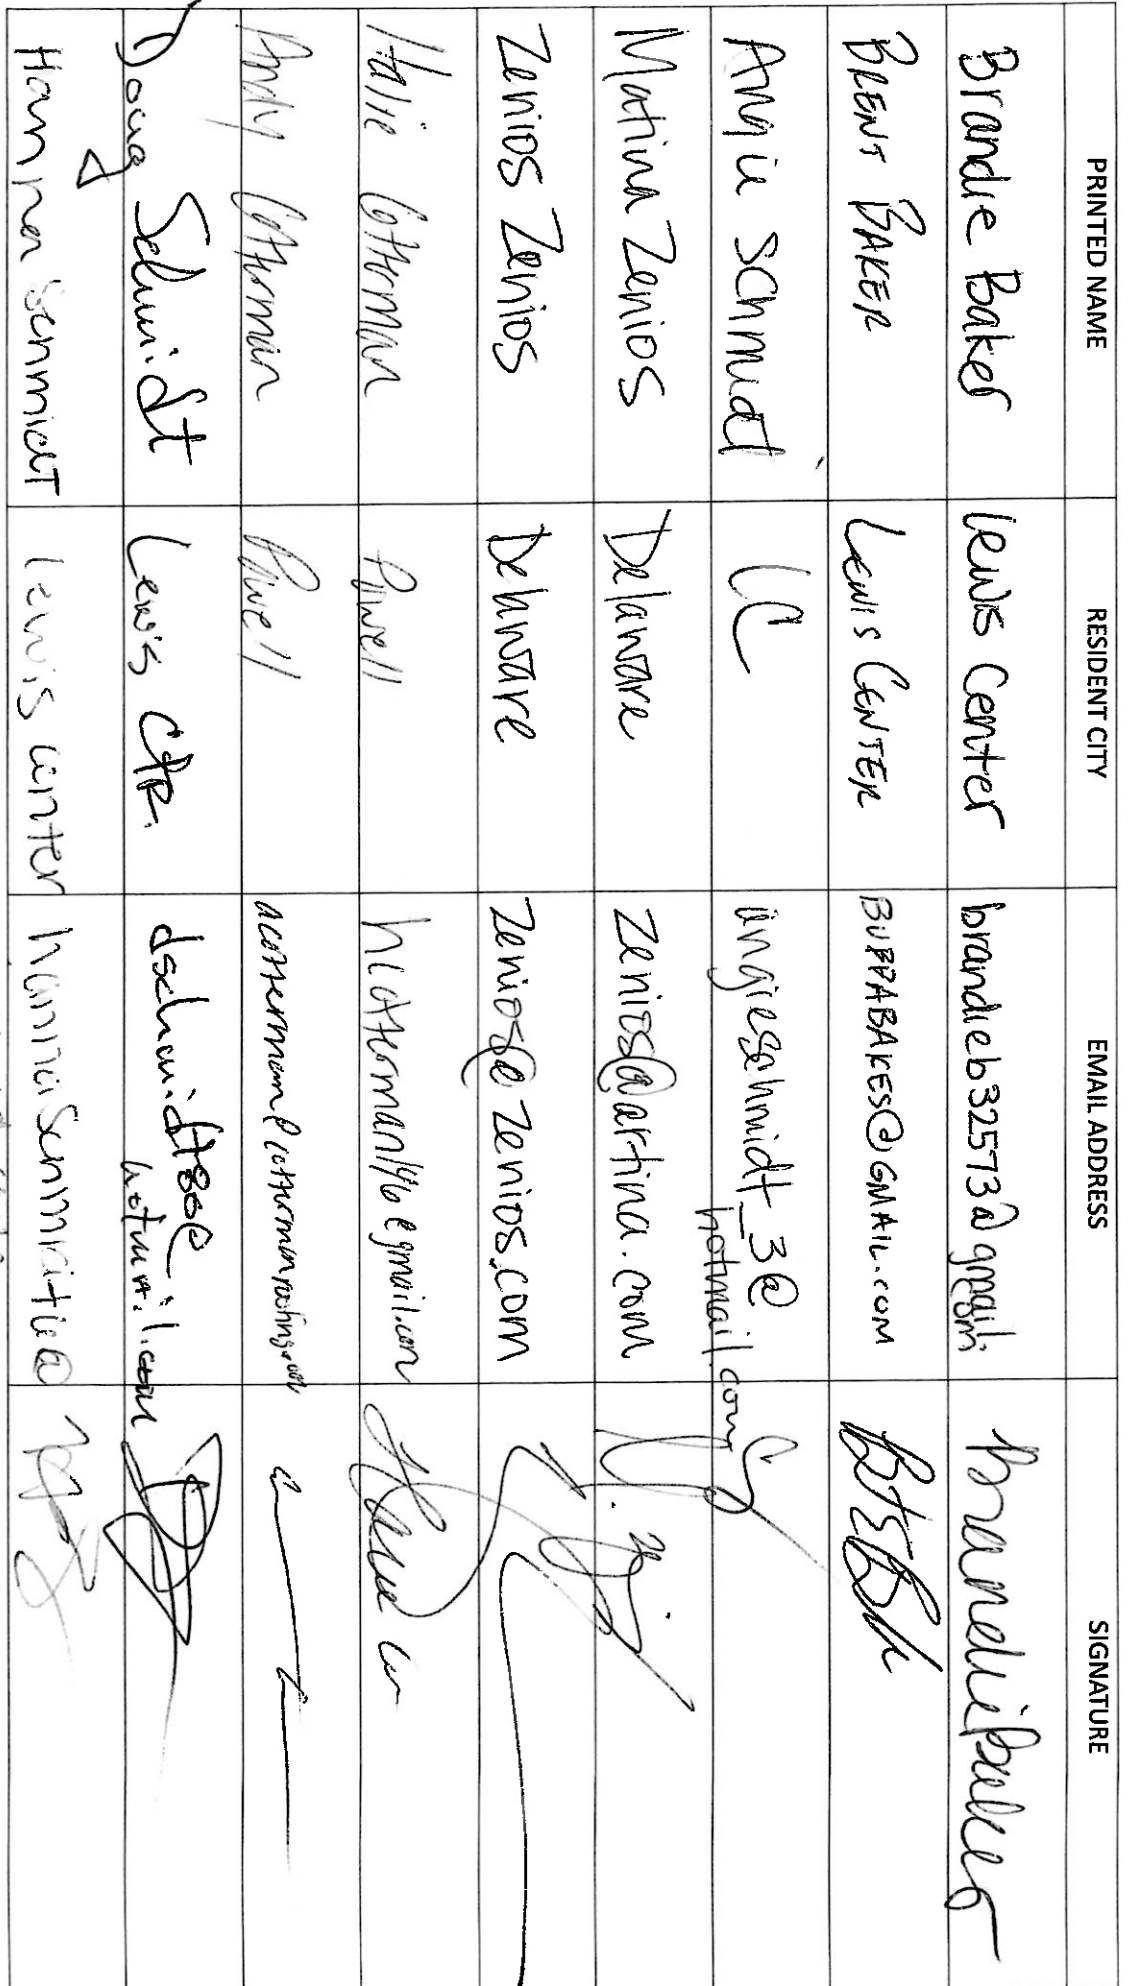 PRINTED NAME RESIDENT CITY EMAIL ADDRESS SIGNATURE
Brandie Baker Lewis Center brandieb32573@gmail.com Brandie Baker
BRENT BAKER LEWIS CENTER BUBBABAKES@GMAIL.COM
Angie Schmidt LC angieschmidt_3@hotmail.com
Matina Zenios Delaware zenios@artina.com
Zenios Zenios Delaware zenios@zenios.com
Halie Cotterman Powell
Andy Cotterman Powell
Doug Schmidt Lewis Ctr. dschmidt80@hotmail.com
Hanna Schmidt Lewis center